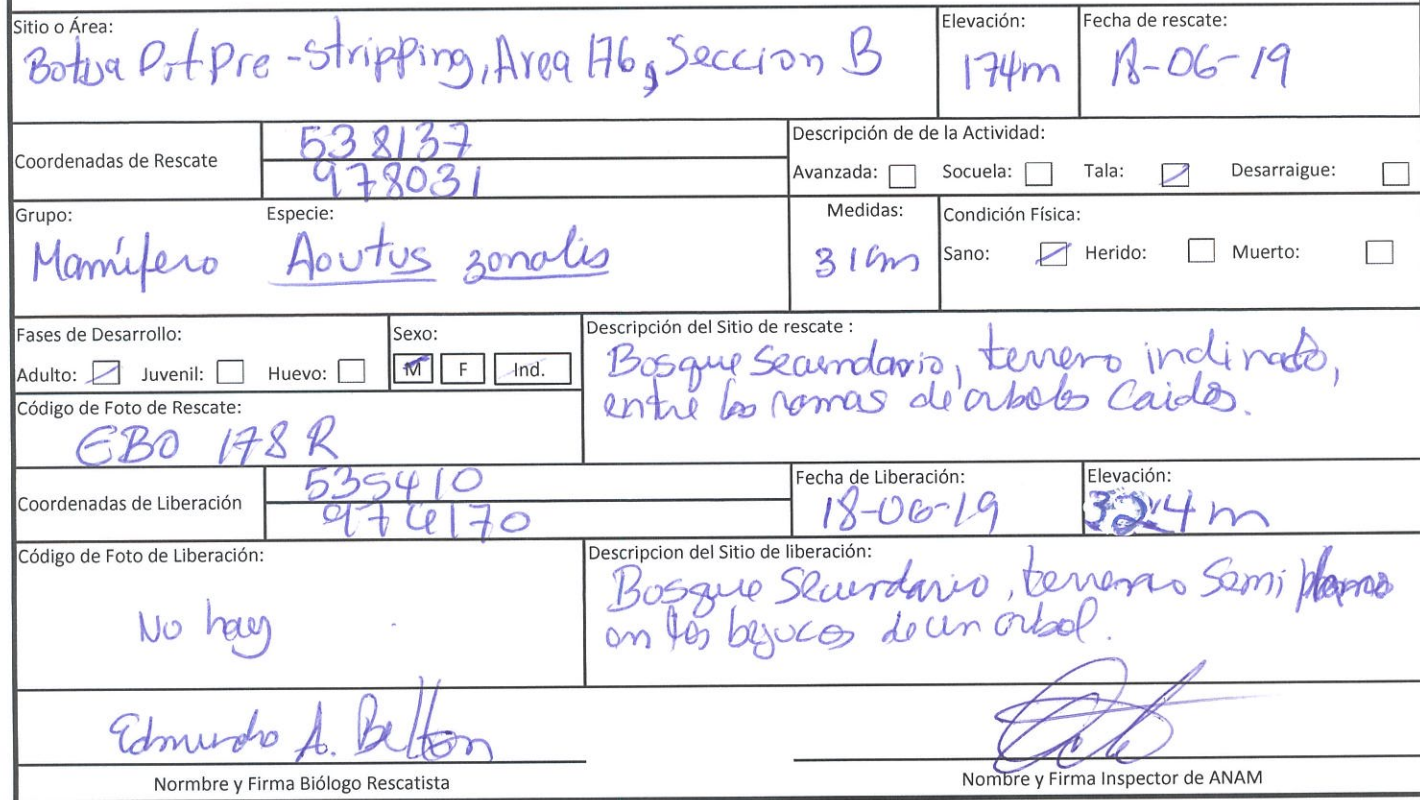 Sitio o Área:
Botija Pit Pre-Stripping, Area 176, Seccion B
Elevación:
174m
Fecha de rescate:
18-06-19
Coordenadas de Rescate
538137
978031
Descripción de de la Actividad:
Avanzada: Socuela: Tala: Desarraigue:
Grupo: Especie:
Mamífero Aoutus zonalis
Medidas:
31cm
Condición Física:
Sano: Herido: Muerto:
Fases de Desarrollo:
Adulto: Juvenil: Huevo:
Sexo:
M F Ind.
Descripción del Sitio de rescate :
Bosque Secundario, terreno inclinado,
entre las ramas de arboles caidos.
Código de Foto de Rescate:
EBO 178 R
Coordenadas de Liberación
535410
974170
Fecha de Liberación:
18-06-19
Elevación:
324 m
Código de Foto de Liberación:
No hay
Descripcion del Sitio de liberación:
Bosque Secundario, terreno Semi plano
en los bejucos de un arbol.
Edmundo A. Belton
Normbre y Firma Biólogo Rescatista
Nombre y Firma Inspector de ANAM